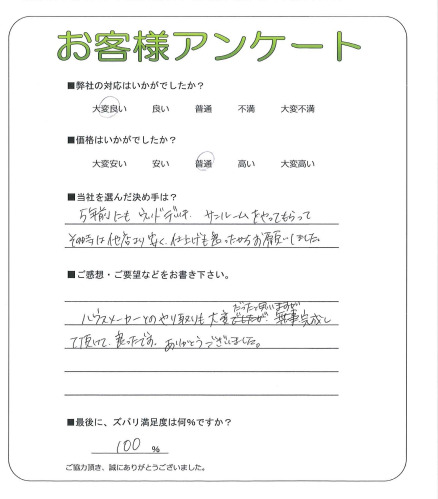 お客様アンケート
■弊社の対応はいかがでしたか？
大変良い　良い　普通　不満　大変不満
■価格はいかがでしたか？
大変安い　安い　普通　高い　大変高い
■当社を選んだ決め手は？
5年前にも ウッドデッキ、サンルームをやってもらって
その時は他店より安く、仕上げも良ったからお願いしました。
■ご感想・ご要望などをお書き下さい。
だったと思いますが
ハウスメーカーとのやり取りも大変でしたが、無事完成し
て頂けて、良ったです。ありがとうございました。
■最後に、ズバリ満足度は何%ですか？
100 %
ご協力頂き、誠にありがとうございました。